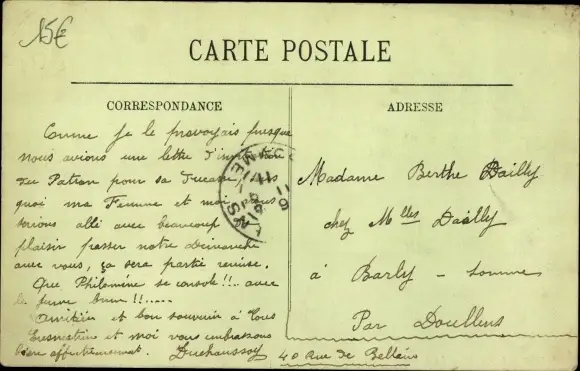 15€
CARTE POSTALE
CORRESPONDANCE
Comme je le prevoyais presque
nous avions une lettre d'invitation
du Patron pour sa ducasse, sans
quoi ma Femme et moi nous
serions allé avec beaucoup de
plaisir passer notre dimanche
avec vous, ça sera partie remise.
Que Philomène se console!!.. avec
le jeune
Amitiés et bon souvenir à tous
Ernestine et moi vous embrassons
bien affectueusement. Duchaussoy
ADRESSE
Madame Berthe Bailly
chez Mlles Dailly
à Barly - Somme
Par Doullens
40 Rue de